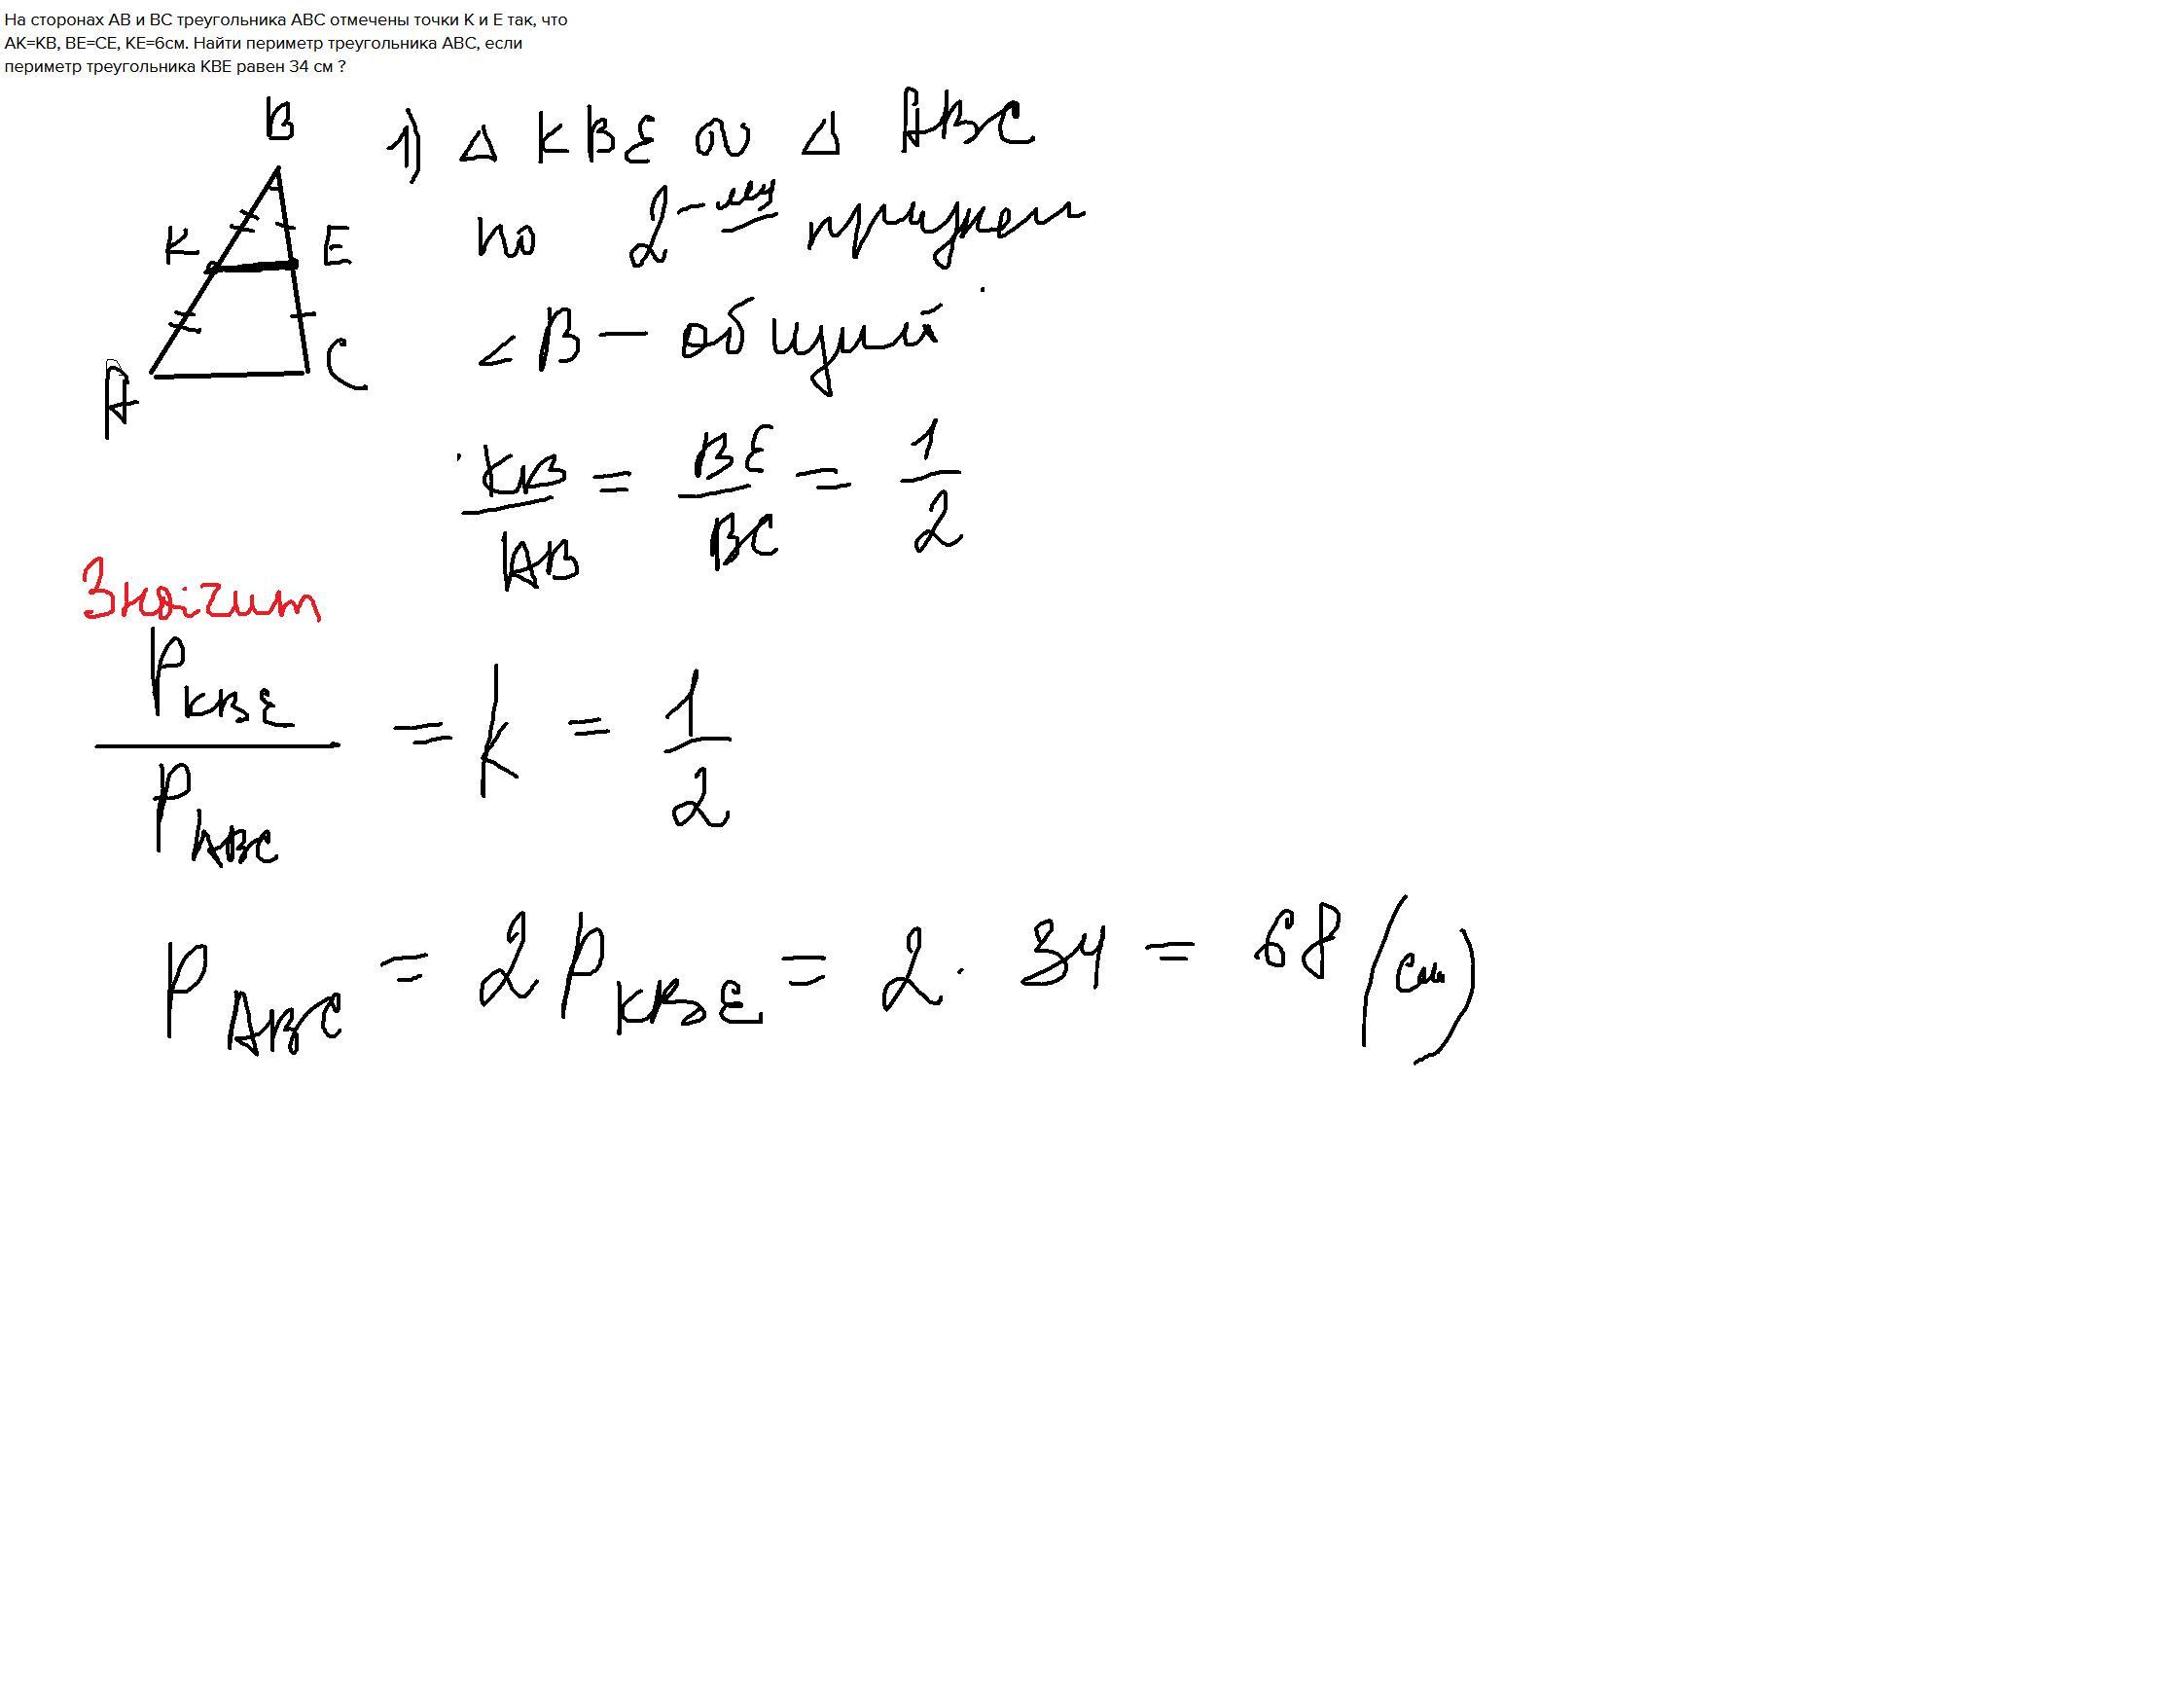 На сторонах АВ и ВС треугольника АВС отмечены точки К и Е так, что
АК=КВ, ВЕ=СЕ, КЕ=6см. Найти периметр треугольника АВС, если
периметр треугольника КВЕ равен 34 см ?
B
K
E
A
C
1) △ KBE ∾ △ ABC
по 2-м
∠B - общий
KB/AB = BE/BC = 1/2
Значит
P KBE / P ABC = k = 1/2
P ABC = 2 P KBE = 2 · 34 = 68 (см)